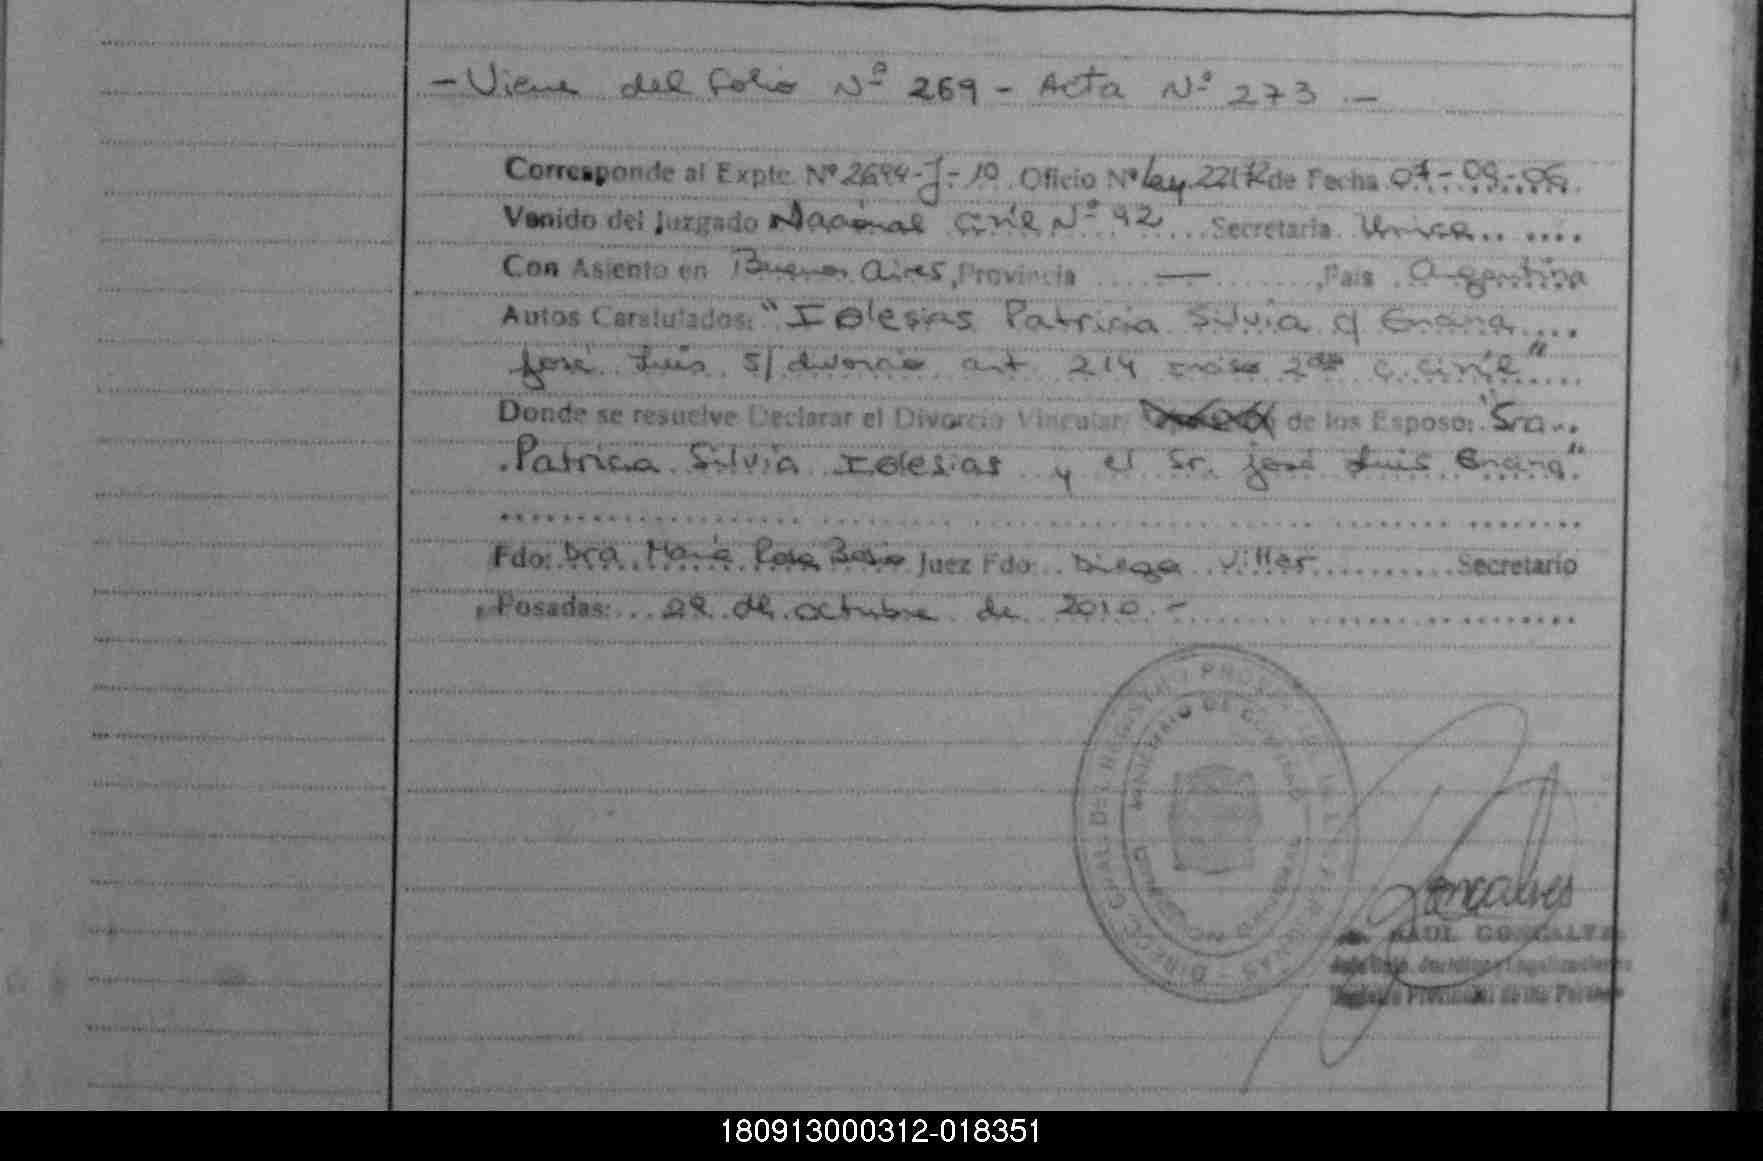 - Viene del folio Nº 269 - Acta Nº 273 . -
Corresponde al Expte. Nº 2694-J-10 Oficio Nº Ley 22172 de Fecha 07-09-06
Venido del Juzgado Nacional Civil Nº 92 Secretaria Unica
Con Asiento en Buenos Aires, Provincia —, Pais Argentina
Autos Caratulados: "Iglesias Patricia Silvia c/
José Luis s/ divorcio art 214 inciso 2do c. civil"
Donde se resuelve Declarar el Divorcio Vincular de los Esposo: "Sra
Patricia Silvia Iglesias y el Sr. José Luis
Fdo: Dra María Rosa Juez Fdo Diego Villar Secretario
Posadas: de octubre de 2010.-
MINISTERIO DE GOBIERNO
Goncalves
RAUL GONCALVES
Registro Provincial de las Personas
180913000312-018351